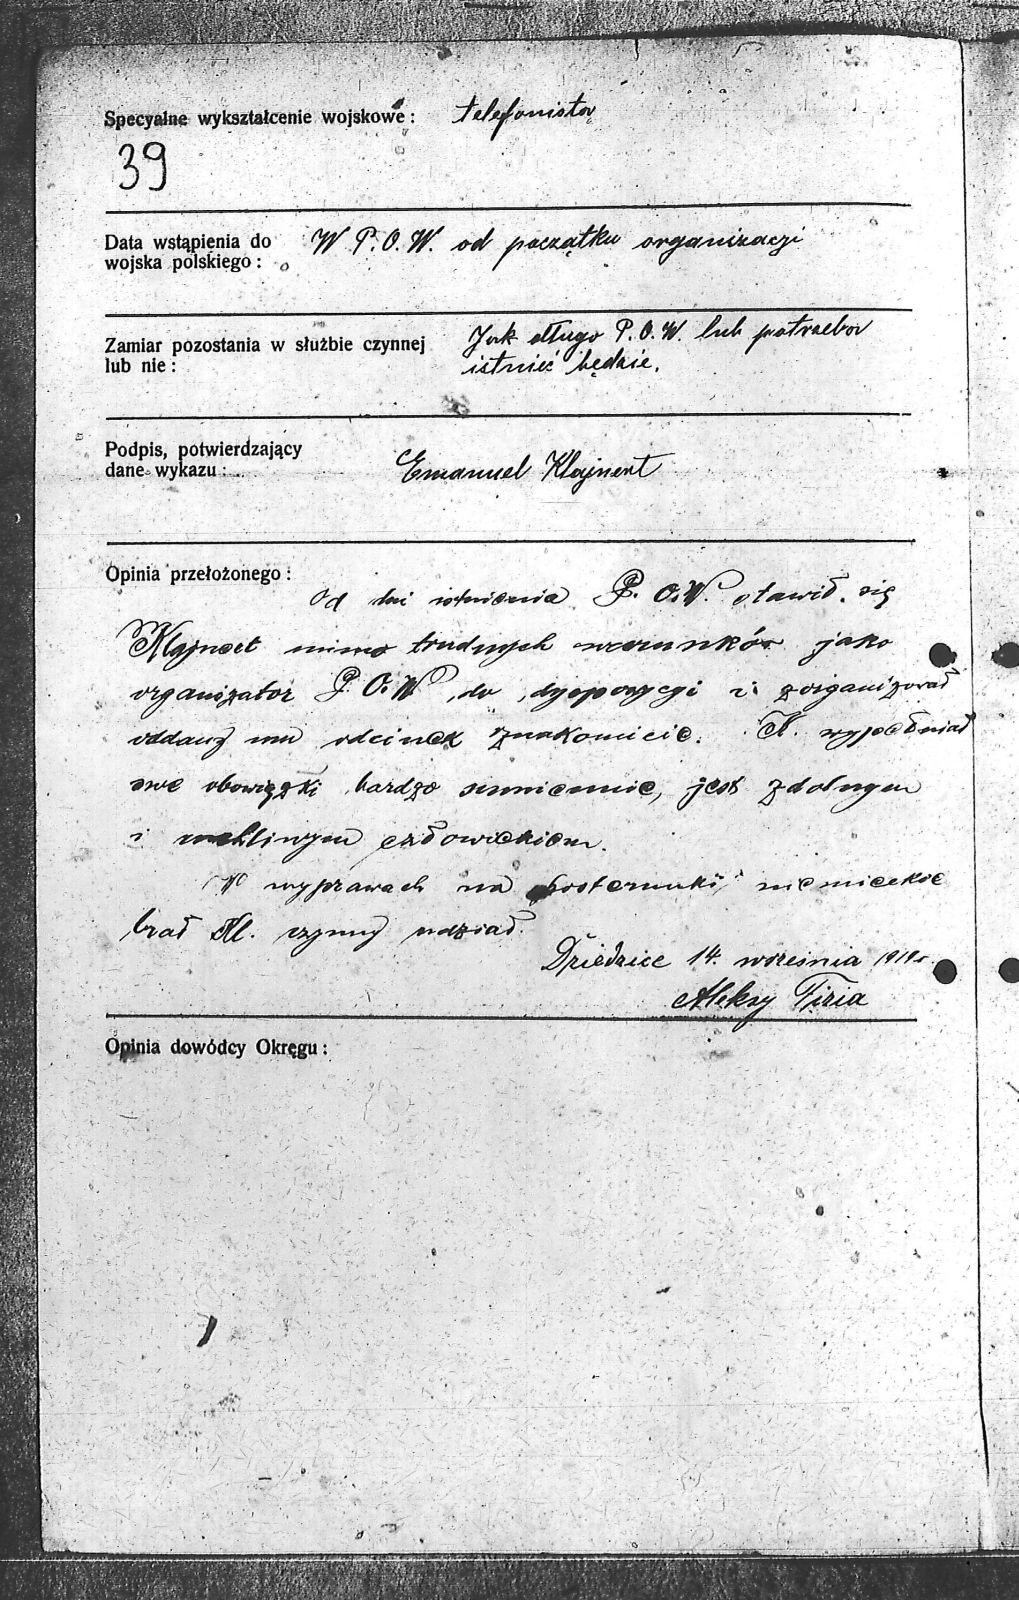 Specyalne wykształcenie wojskowe: telefonista
39
Data wstąpienia do W P.O.W. od początku organizacji
wojska polskiego:
Zamiar pozostania w służbie czynnej Jak długo P.O.W. lub potrzeba
lub nie: istnieć będzie.
Podpis, potwierdzający
dane wykazu: Emanuel Klajnert
Opinia przełożonego:
Od dni istnienia P.O.W. stawił się
Klajnert mimo trudnych warunków jako
organizator P.O.W. do dyspozycji i zorganizował
oddany mu odcinek znakomicie. K. wypełniał
swe obowiązki bardzo sumiennie, jest zdolnym
i człowiekiem.
W wyprawach na posterunki niemieckie
brał Kl. czynny udział.
Dziedzice 14. września 1919 r.
Aleksy
Opinia dowódcy Okręgu: